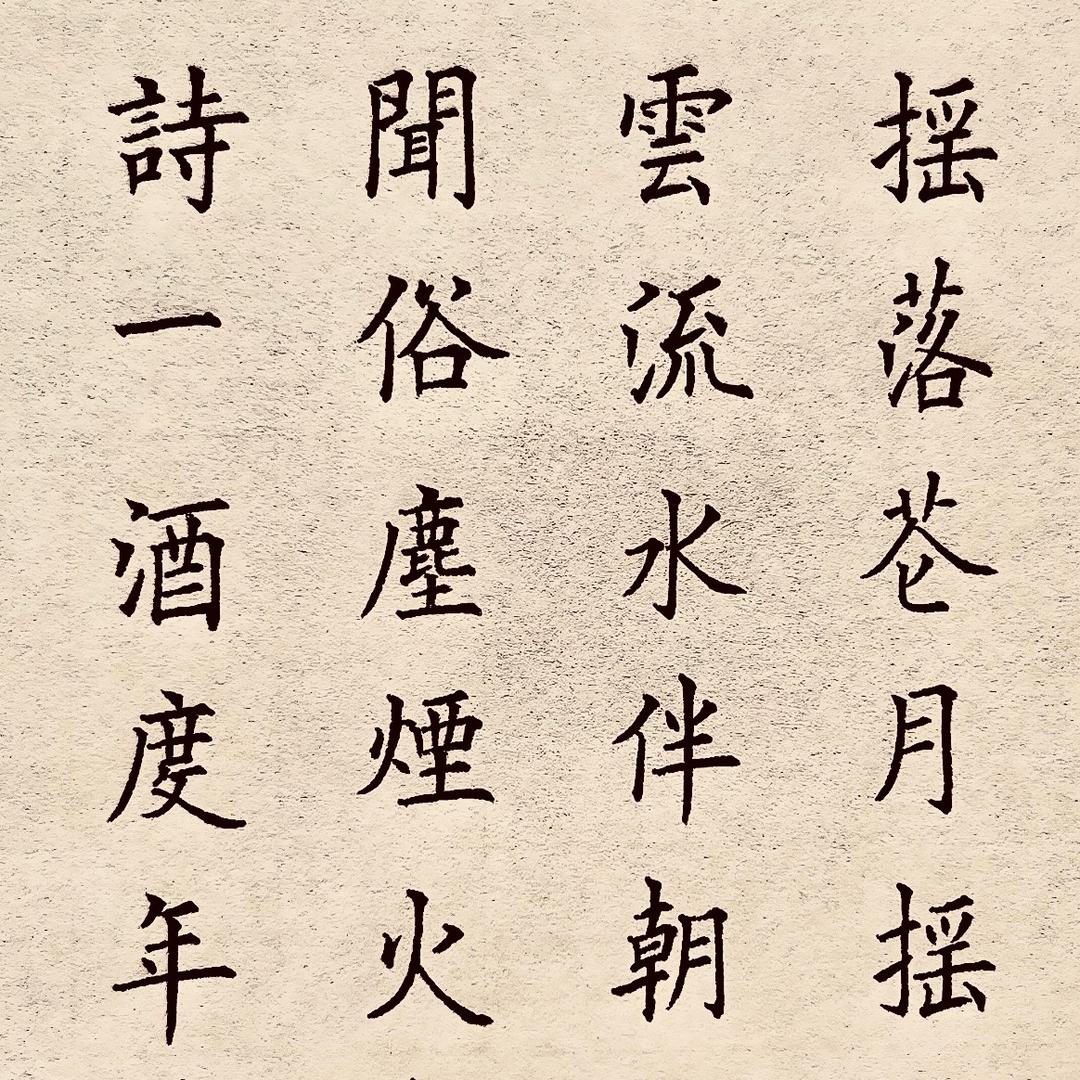 揺落苍月揺
雲流水伴朝
聞俗塵煙火
詩一酒度年